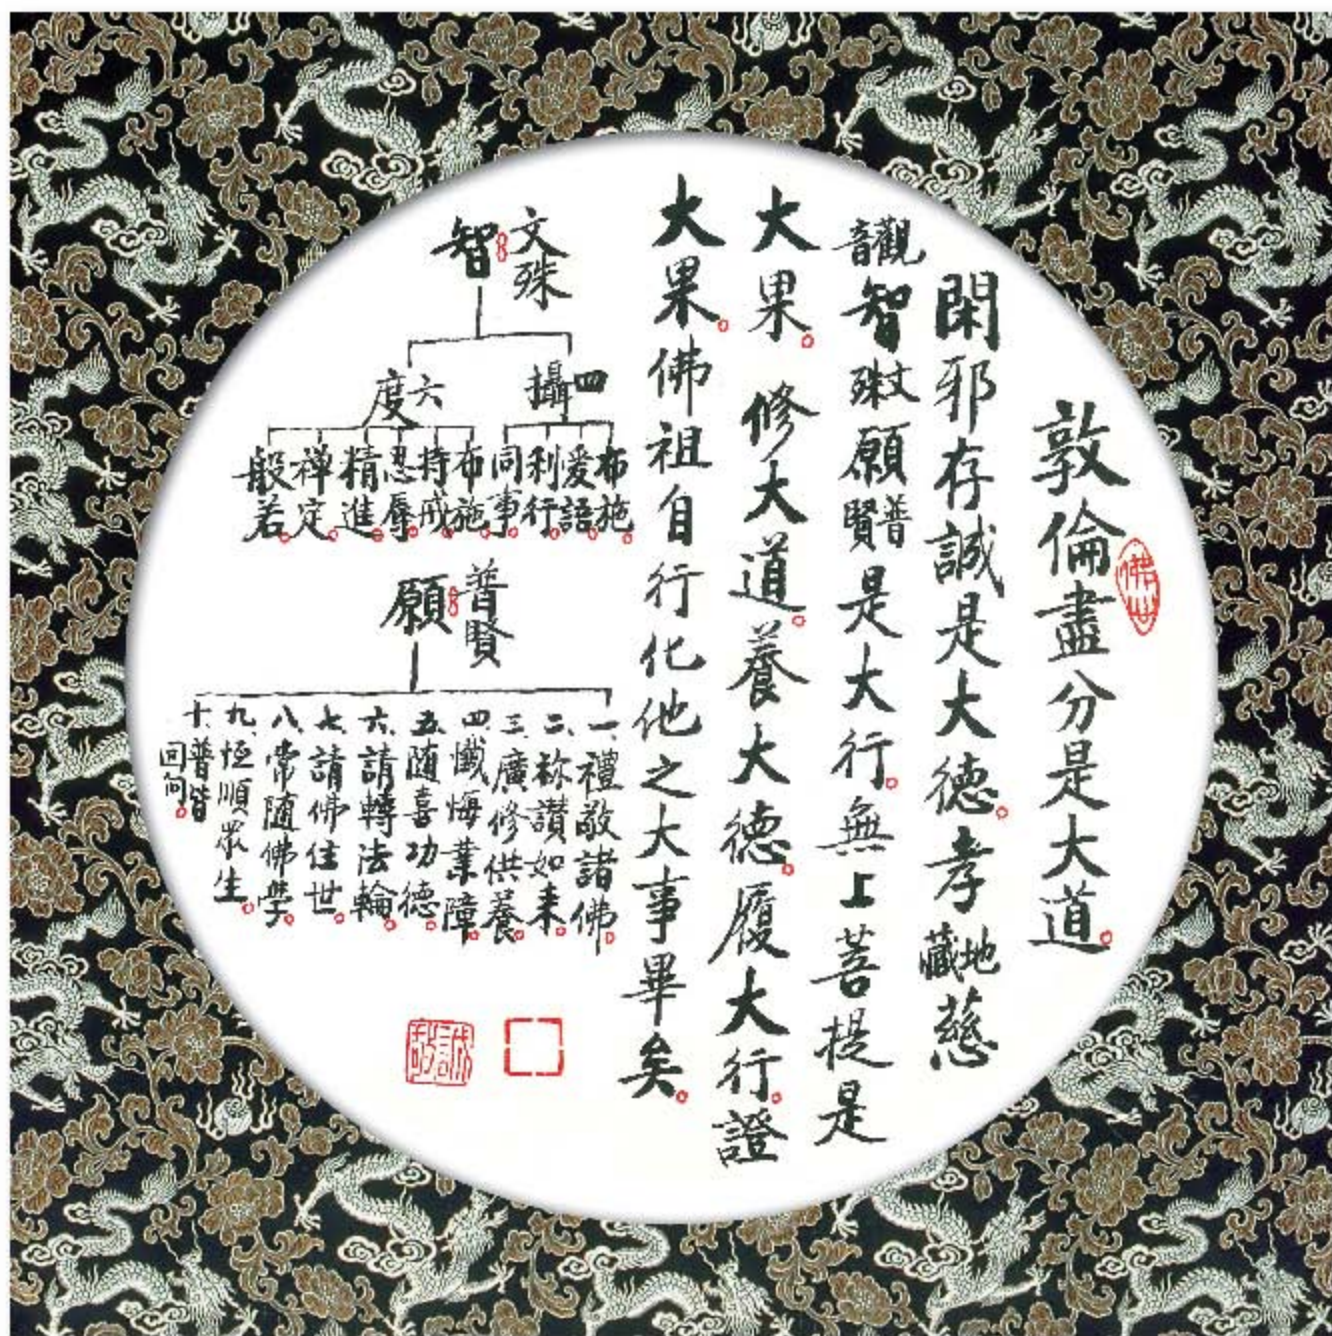 敦倫盡分是大道。
閑邪存誠是大德。孝地藏慈
觀音智文殊願普賢是大行。無上菩提是
大果。修大道。養大德。履大行。證
大果。佛祖自行化他之大事畢矣。
文殊
智
四攝
布施。
愛語。
利行。
同事。
六度
布施。
持戒。
忍辱。
精進。
禅定。
般若。
普賢
願
一、禮敬諸佛。
二、称讃如来。
三、廣修供養。
四、懺悔業障。
五、随喜功德。
六、請轉法輪。
七、請佛住世。
八、常随佛學。
九、恒順眾生。
十、普皆回向。